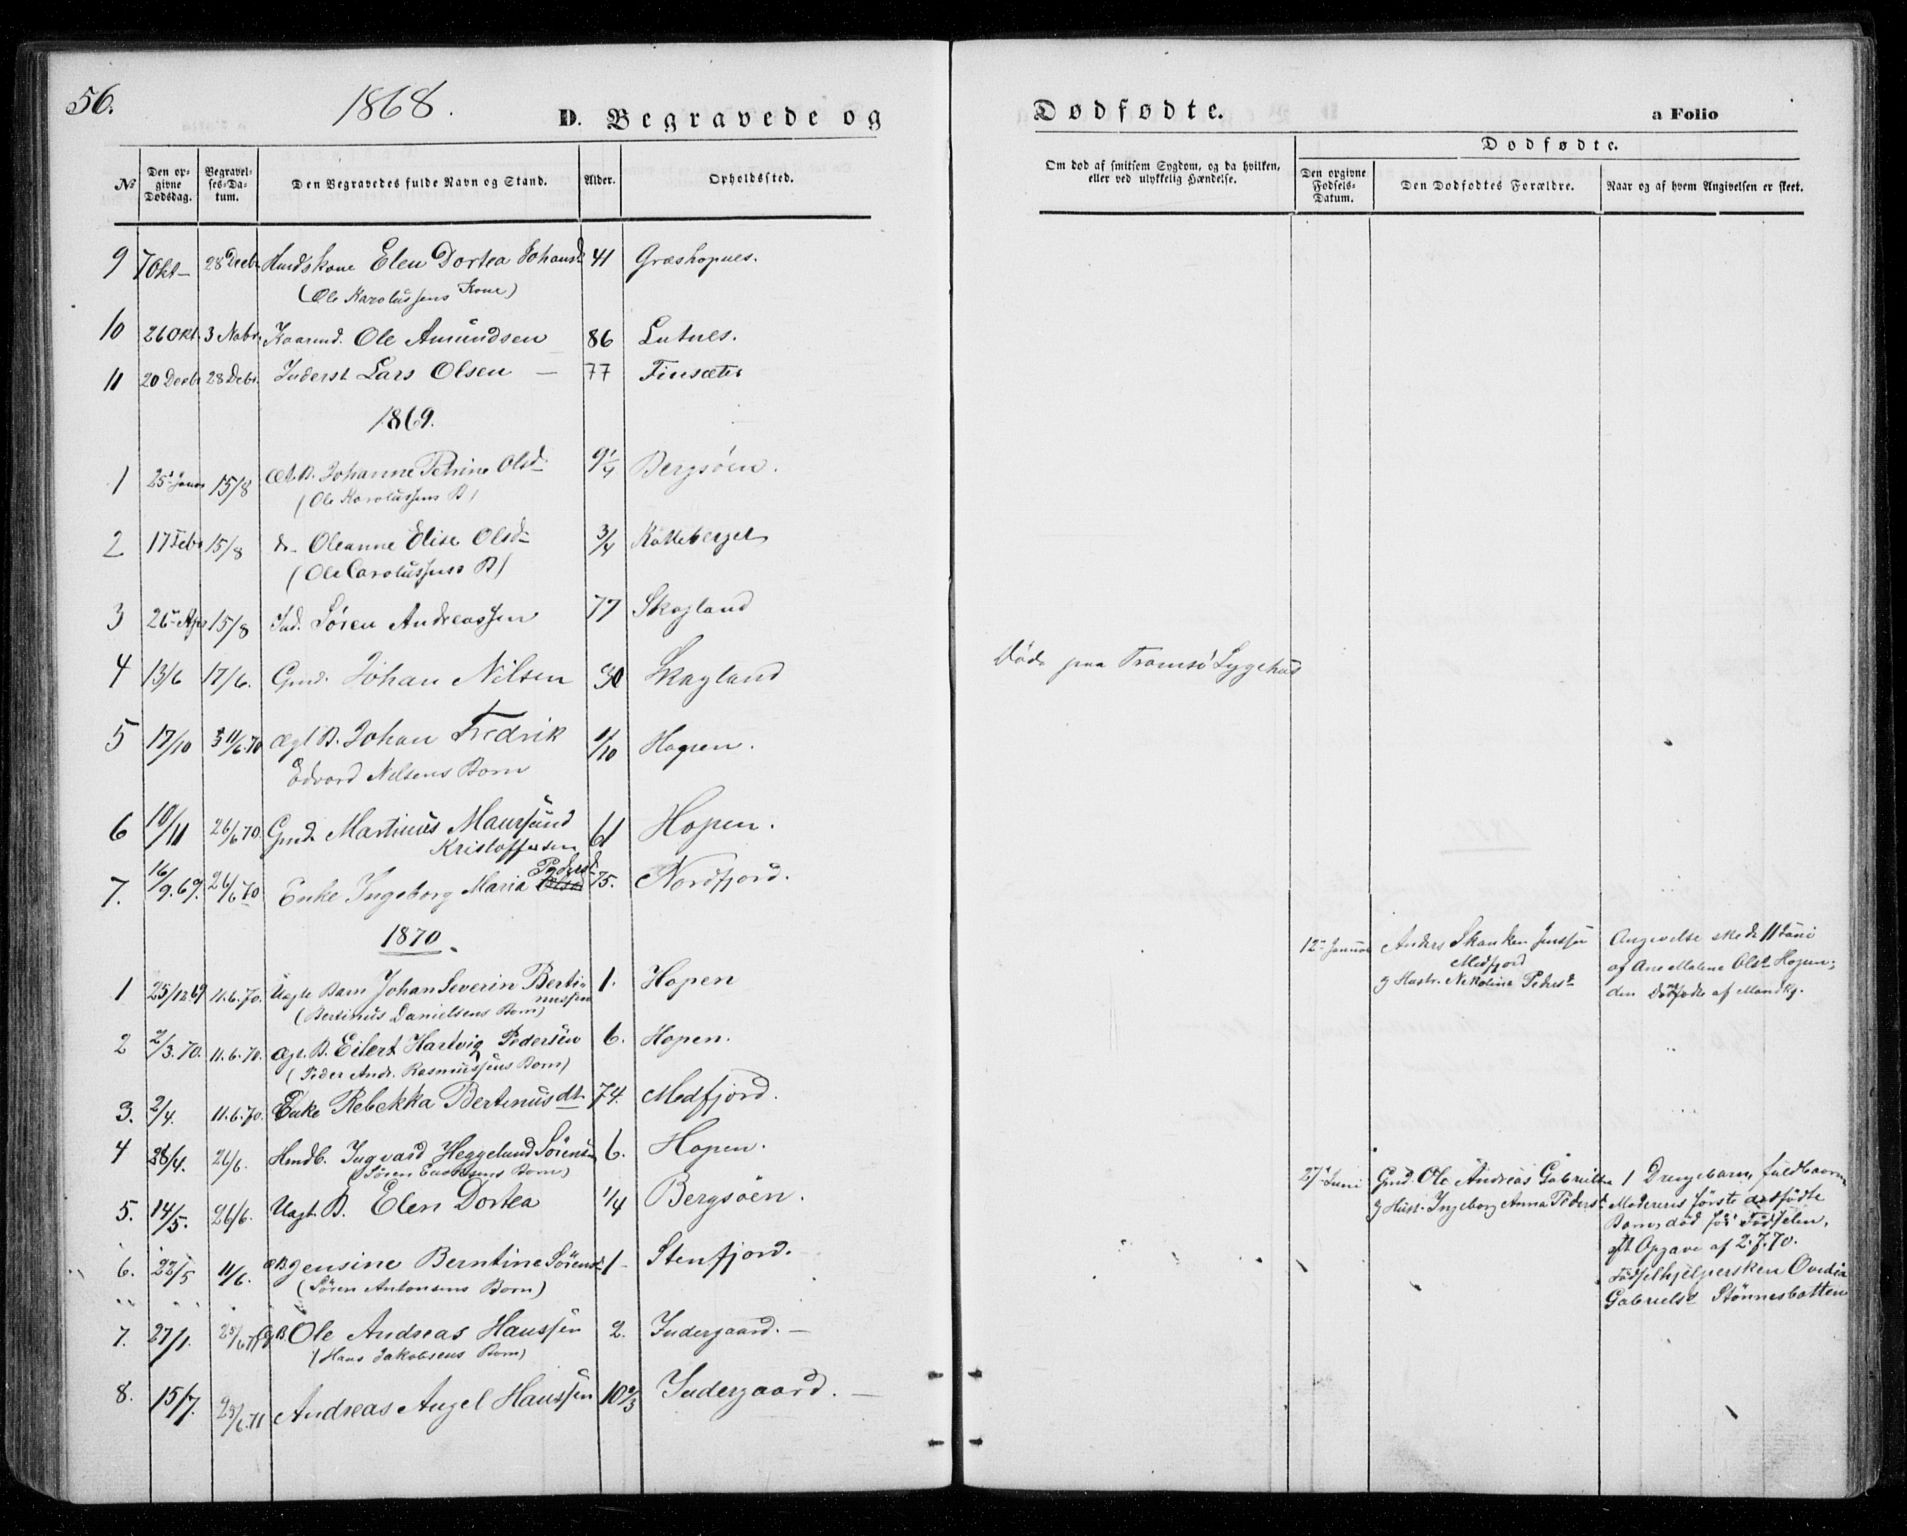 56.
1868.
D. Begravede og
Dødfødte.
a Folio
№ Den opgivne Dødsdag. Begravelses-Datum. Den Begravedes fulde Navn og Stand. Alder. Opholdssted.
Om død af smitsom Sygdom, og da hvilken, eller ved ulykkelig Hændelse.
Dødfødte.
Den opgivne Fødsels-Datum. Den Dødfødtes Forældre. Naar og af hvem Angivelsen er skeet.
9 7 Okt 28 Decbr Elen Dortea Johansd 41 Græshopnes.
(Ole Karolussens Kone)
10 26 Okt. 3 Novbr. Kaarmd. Ole Amundsen 86 Lutnes.
11 20 Decbr 28 Debr. Inderst Lars Olsen — 77 Finsæter
1869.
1 25 Januar 15/8 Æ. B. Johanne Petrine Olsd 9 1/4 Bergsöen.
(Ole Karolussens B)
2 17 Febr 15/8 do Oleanne Elise Olsd 3/4 Kolleberget
(Ole Carolussens B)
3 26 Apr 15/8 Ind. Sören Andreassen 77 Skagland
4 13/6 17/6. Gmd. Johan Nilsen 30 Skagland
Döde paa Tromsö Sygehus
5 17/10 11/6.70 Ægt B. Johan Fredrik 1/10 Hopen.
Edvard Nilsens Barn
6 10/11 26/6 70. Gmd. Martinus Maursund 61 Hopen.
Kristoffersen
7. 16/9.69. 26/6 70 Enke Ingeborg Maria Pedersd 75. Nordfjord.
1870.
1 25/12 69 11.6.70. Uægte Barn Johan Severin Bertinussen 1. Hopen
(Bertinus Danielsens Barn)
2 2/3.70. 11.6.70. Ægt. B. Eilert Hartvig Pedersen 6. Hopen.
(Peder Andr. Rasmussens Barn)
3. 2/4. 11.6.70. Enke Rebekka Bertinusdt. 74. Medfjord.
4 28/4. 26/6. Hmdb. Ingvard Heggelund Sörensen 6. Hopen.
5. 14/5. 26/6. Uægt. B. Elen Dortea 1/4 Bergsöen.
6. 22/5 11/6. Æ B. Jensine Berntine Sörensd 1 Stenfjord.
(Sören Antonsens Barn)
7. 27/1. 25/6 71 Æ B. Ole Andreas Hanssen 2. Indergaard. —
(Hans Jakobsens Barn)
8. 15/7. 25/6.71 Andreas Angel Hanssen 10 2/3 Indergaard. —
12 Januar Anders Skanken Jenssen
Medfjord
g Hustr. Nekolina Pedersd
Angivelse skede 11 Juni
af Ane Malene Olsd Hopen;
den Dödfödte af Mandkj.
27 Juni Gmd. Ole Andreas Gabrielsen
g Hust. Ingeborg Anna Pedersd
1 Drengebarn, fuldbaaren
Moderens förste
Barn, död för Födselen,
eft Opgave af 2.7.70.
Födselhjelpersken Ovedia
Gabrielsd Stönnesbotten